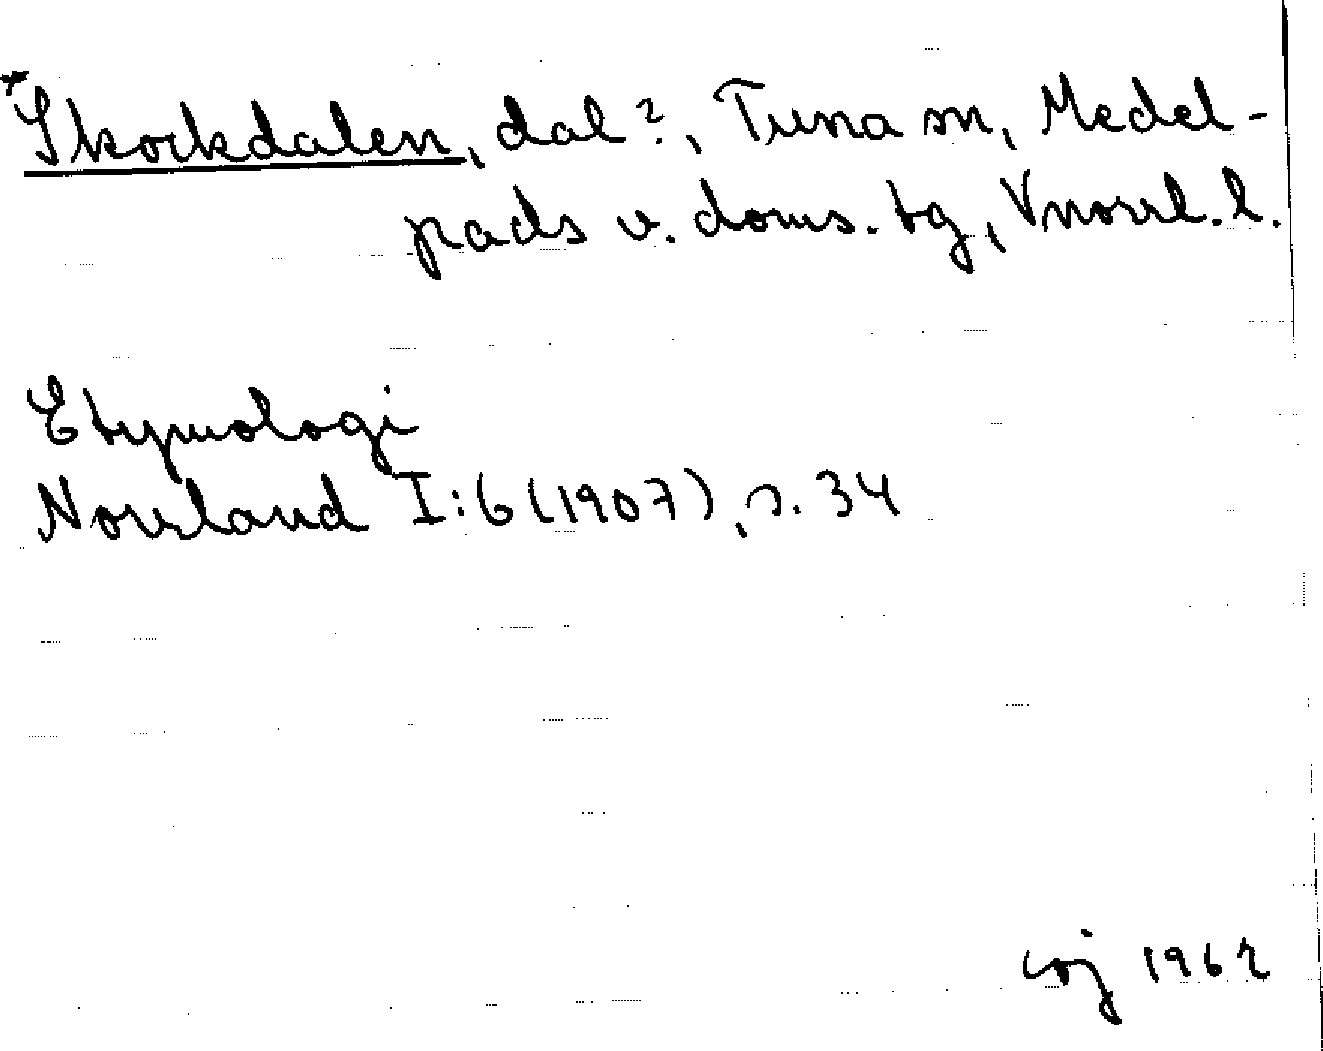 *Skockdalen, dal?, Tuna sn, Medel-
pads v. doms. tg, Vnorrl. l.
Etymologi
Norrland I:6 (1907), s. 34
1962